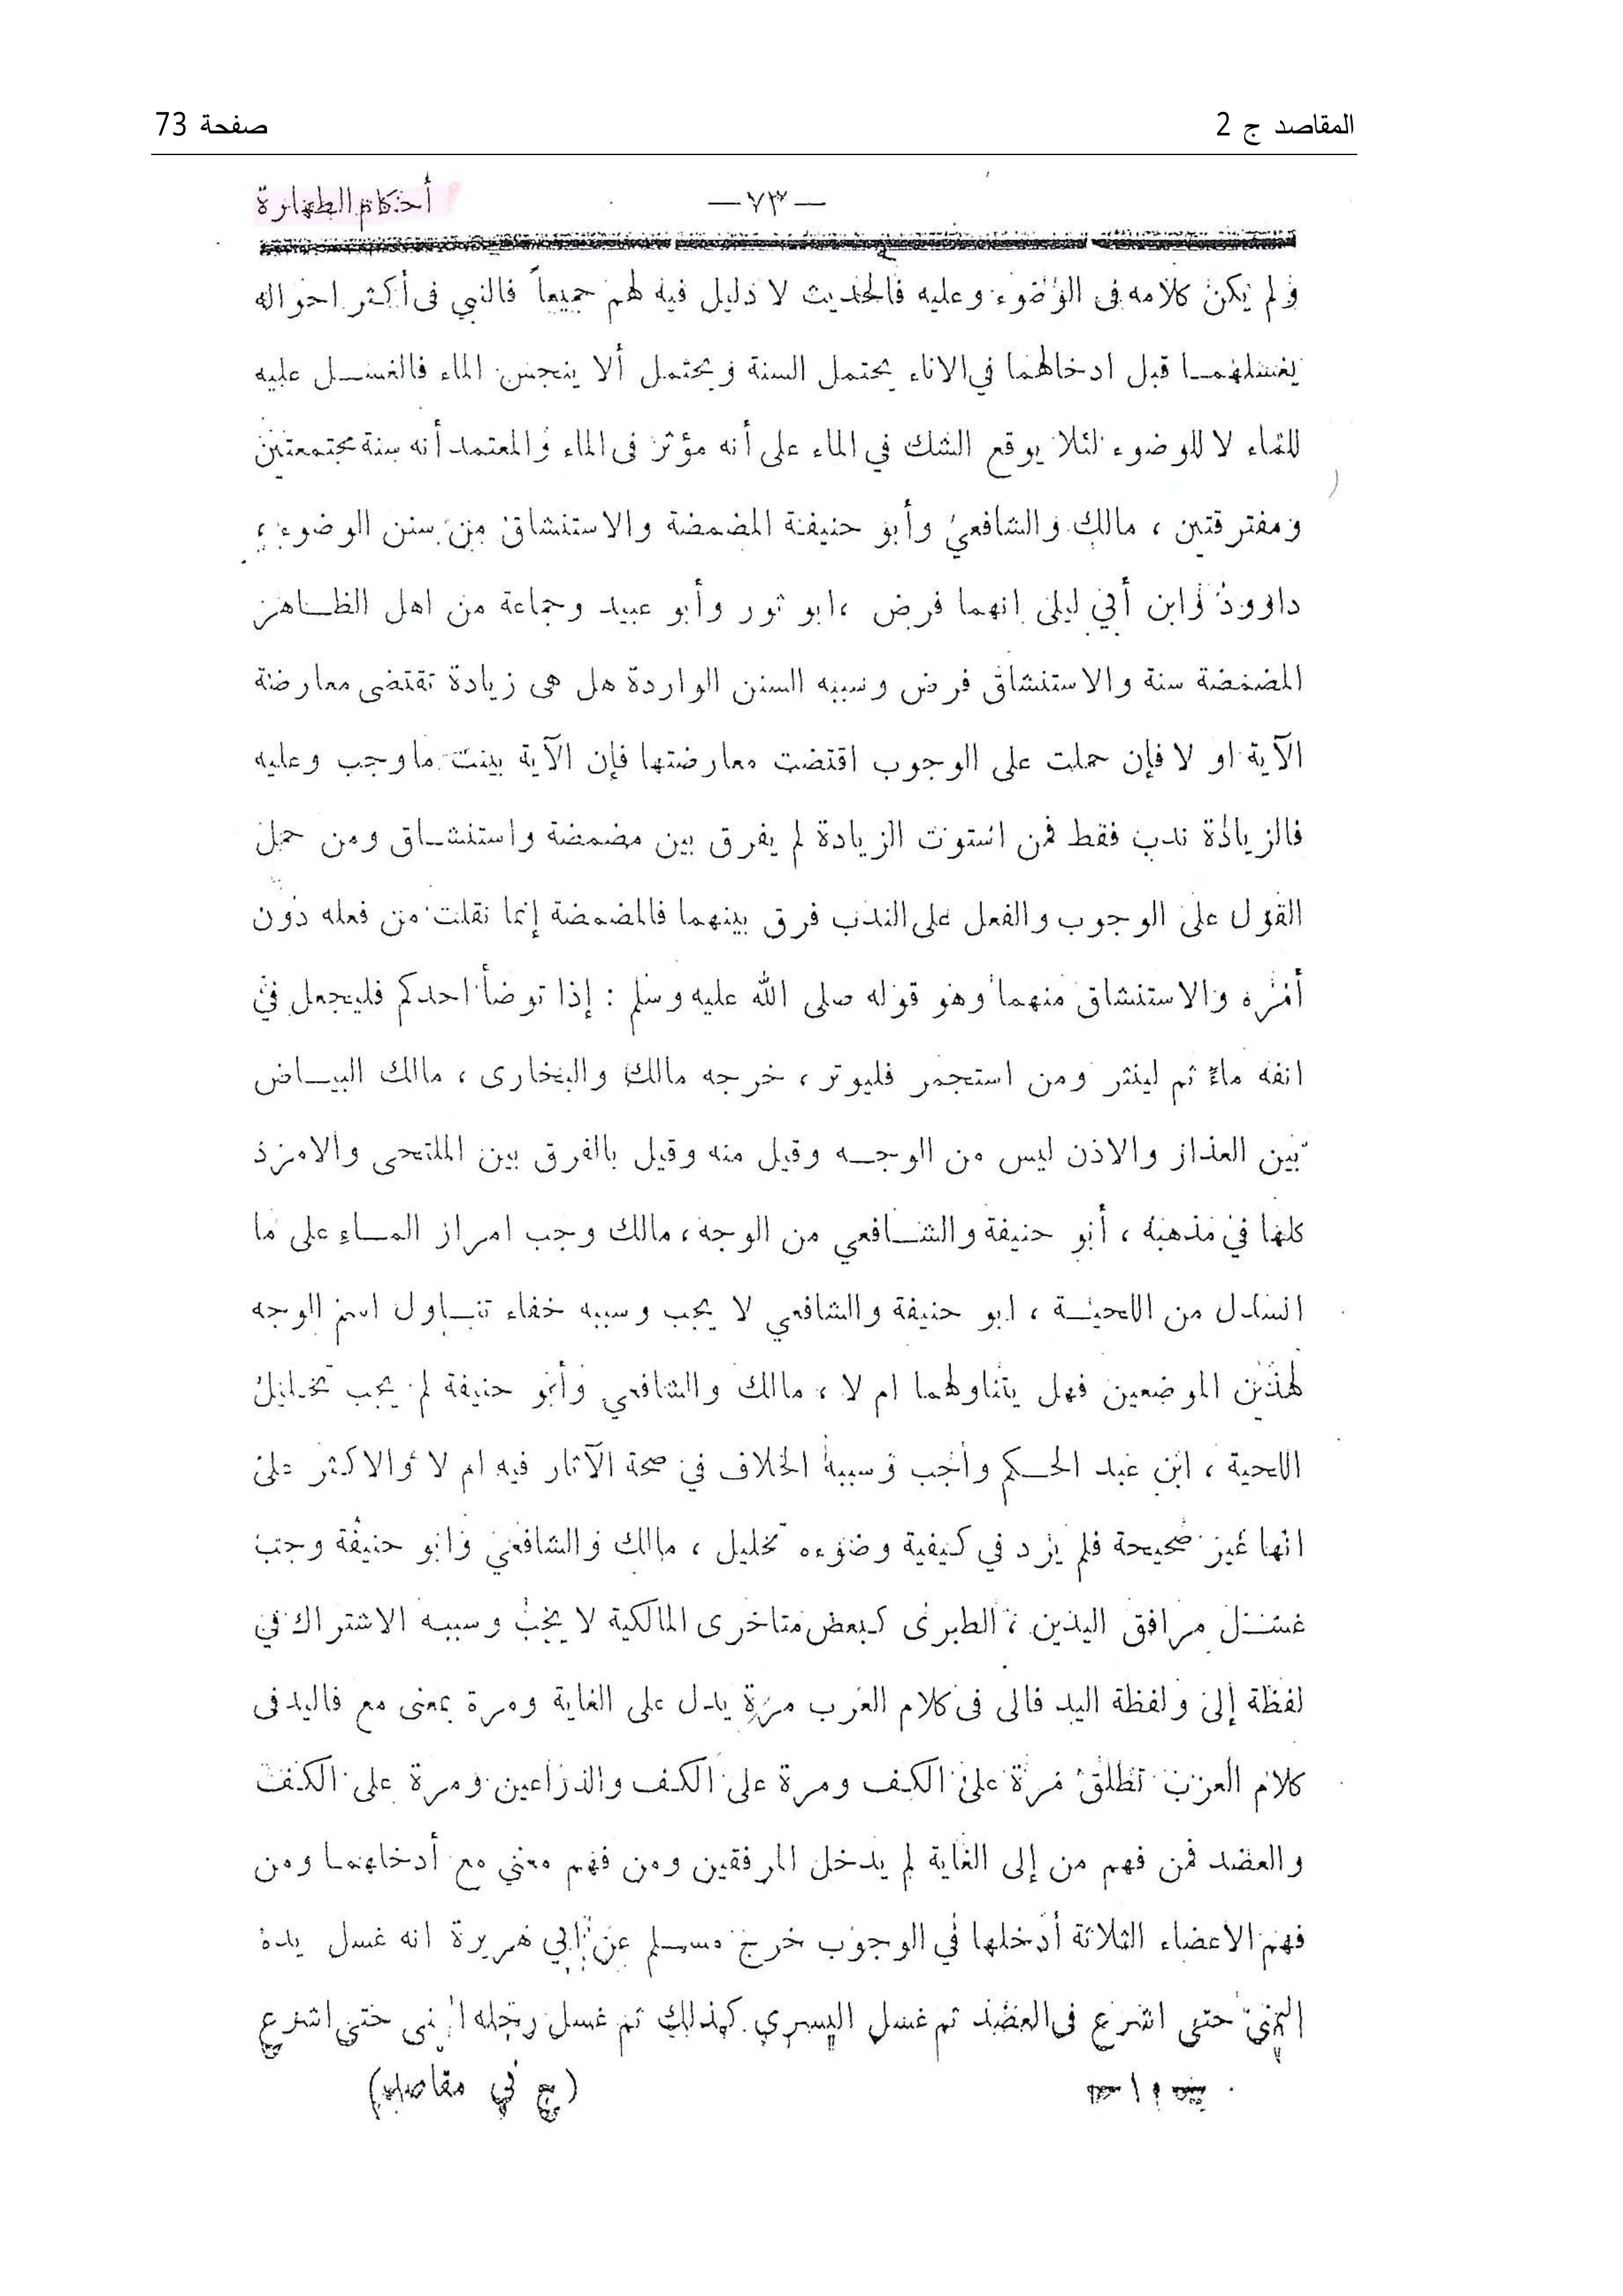 المقاصد ج 2 صفحة 73
أحكام الطهارة —٧٣—
ولم يكن كلامه فى الوضوء وعليه فالحديث لا دليل فيه لهم جميعاً فالنبي فى أكثر احواله
يغسلهما قبل ادخالهما في الاناء يحتمل السنة ويحتمل ألا ينجس الماء فالغسل عليه
للماء لا للوضوء لئلا يوقع الشك في الماء على أنه مؤثر فى الماء والمعتمد أنه سنة مجتمعتين
ومفترقتين ، مالك والشافعي وأبو حنيفة المضمضة والاستنشاق من سنن الوضوء ،
داوود وابن أبي ليلى انهما فرض ، ابو ثور وأبو عبيد وجماعة من اهل الظاهر
المضمضة سنة والاستنشاق فرض وسببه السنن الواردة هل هى زيادة تقتضى معارضة
الآية او لا فإن حملت على الوجوب اقتضت معارضتها فإن الآية بينت ما وجب وعليه
فالزيادة ندب فقط فمن استوت الزيادة لم يفرق بين مضمضة واستنشاق ومن حمل
القول على الوجوب والفعل على الندب فرق بينهما فالمضمضة إنما نقلت من فعله دون
أمره والاستنشاق منهما وهو قوله صلى الله عليه وسلم : إذا توضأ احدكم فليجعل في
انفه ماءً ثم لينثر ومن استجمر فليوتر ، خرجه مالك والبخارى ، مالك البياض
بين العذار والاذن ليس من الوجه وقيل منه وقيل بالفرق بين الملتحى والامرد
كلها في مذهبه ، أبو حنيفة والشافعي من الوجه ، مالك وجب امرار الماء على ما
انسدل من اللحية ، ابو حنيفة والشافعي لا يجب وسببه خفاء تناول اسم الوجه
لهذين الموضعين فهل يتناولهما ام لا ، مالك والشافعي وأبو حنيفة لم يجب تخليل
اللحية ، ابن عبد الحكم وأجب وسببه الخلاف في صحة الآثار فيه ام لا والاكثر على
انها غير صحيحة فلم يرد في كيفية وضوءه تخليل ، مالك والشافعي وابو حنيفة وجب
غسل مرافق اليدين ، الطبرى كبعض متاخرى المالكية لا يجب وسببه الاشتراك في
لفظة إلى ولفظة اليد فالى فى كلام العرب مرة يدل على الغاية ومرة بمعنى مع فاليد فى
كلام العرب تطلق مرة على الكف ومرة على الكف والذراعين ومرة على الكف
والعضد فمن فهم من إلى الغاية لم يدخل المرفقين ومن فهم معني مع أدخلهما ومن
فهم الاعضاء الثلاثة أدخلها في الوجوب خرج مسلم عن ابي هريرة انه غسل يده
اليمنى حتى اشرع فى العضد ثم غسل اليسرى كذلك ثم غسل رجله اليمنى حتى اشرع